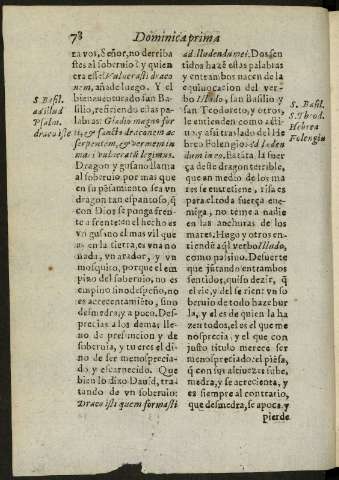 78
Dominica prima
S. Basil.
ad illud
Psalm.
draco iste
ravos, Señor, no derriba
stes al soberuio? y quien
era esse? Vulnerasti draco
nem, añade luego. Y el
bienauenturado san Ba-
silio, refiriendo estas pa-
labras: Gladio magno for
ti, & sancto draconem ac
serpentem, & vermem in
mari vulnerasti legimus.
Dragon y gusano llama
al soberuio, por mas que
en su pẽsamiento sea vn
dragon tan espantoso, q̃
con Dios se ponga fren-
te a frente: en el hecho es
vn gusano el mas vil que
ay en la tierra, es vna no
nada, vn arador, y vn
mosquito, porque el em
pino del soberuio, no es
empino sino despeño, no
es acrecentamiẽto, sino
desmedra, y a poco. Des-
precias a los demas lle-
no de presuncion y de
soberuia, y tu eres el di-
no de ser menosprecia-
do y escarnecido. Que
bien lo dixo Dauid, tra-
tando de vn soberuio:
Draco iste quem formasti
ad illudendum ei. Dos sen
tidos hazẽ estas palabras
y entrambos nacen de la
equiuocacion del ver-
bo Illudo, san Basilio y
san Teodoreto, y otros,
le entienden como acti-
uo, y assi trasladò del He
breo Folengio: ad luden
dum in eo. Estatà, la fuer
ça desse dragon terrible,
que en medio de los ma
res se entretiene, risa es
para el toda fuerça ene-
miga, no teme a nadie
en las anchuras de los
mares. Hugo y otros en-
tiendẽ aq̃l verbo Illudo,
como passiuo. De suerte
que jũtando entrambos
sentidos, quiso dezir, q̃
el rie, y del se rien: vn so
beruio de todo haze bur
la, y el es de quien la ha
zen todos, el es el que me
nosprecia, y el que con
justo titulo merece ser
menospreciado: el piẽsa,
q̃ con sus altiuezes sube,
medra, y se acrecienta, y
es siempre al contrario,
que desmedra, se apoca, y
pierde
S. Basil.
S. Theod.
Hebrea
Folengiu